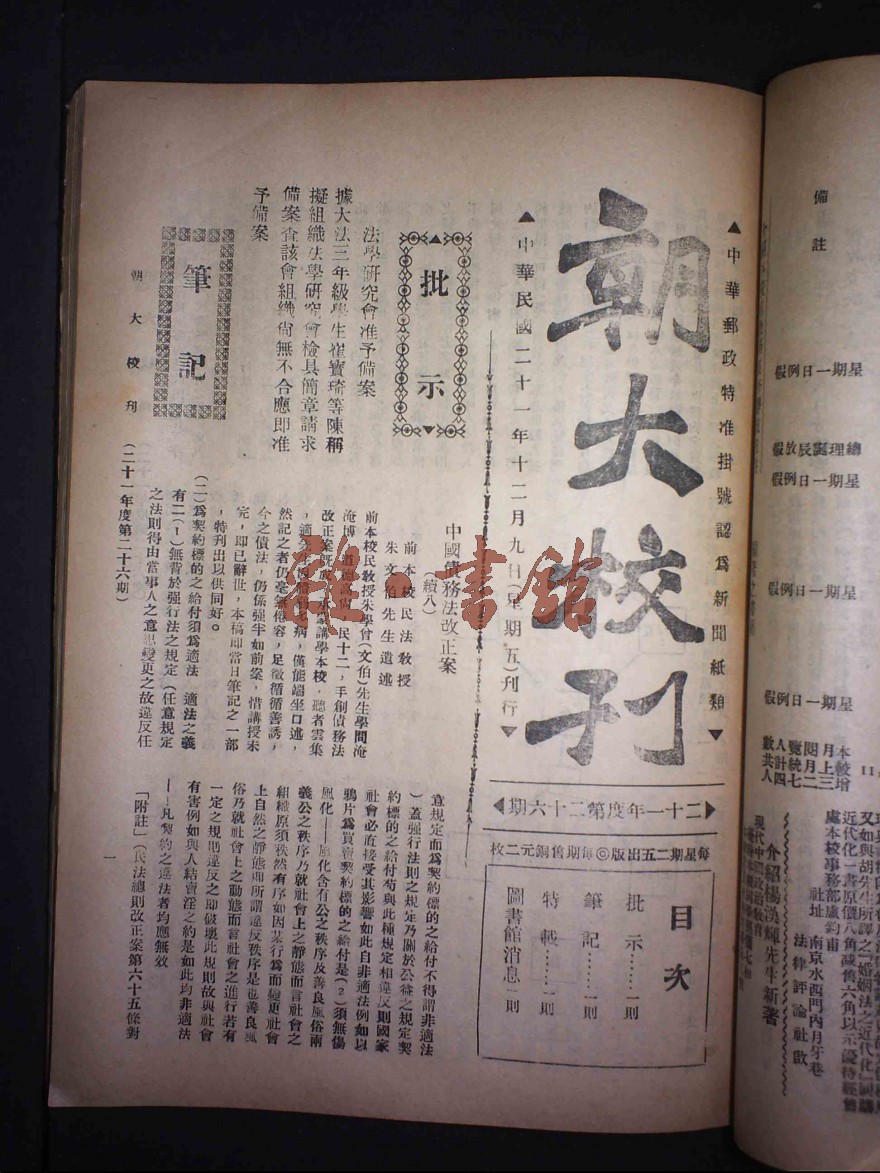 ▲中華郵政特准掛號認為新聞紙類▼
朝大校刊
▲中華民國二十一年十二月九日(星期五)刊行▼
◀二十一年度第二十六期▶
每星期二五出版◎每期舊銅元二枚
目次
批示……一則
筆記……一則
特載……一則
圖書館消息一則
▲批示▼
法學研究會准予備案
據大法三年級學生崔寶琦等陳稱
擬組織法學研究會檢具簡章請求
備案查該會組織尚無不合應即准
予備案
筆記
中國債務法改正案
(續八)
前本校民法教授
朱文伯先生遺述
前本校民教授朱學曾(文伯)先生學問淹
淹博,道德高尚,民十二,手創債務法
改正案既成,講學本校,聽者雲集
病,僅能端坐口述,
然記之者仍毫無倦容,足徵循循善誘,
今之債法,仍係强半如前案,惜講授未
完,即已辭世,本稿即當日筆記之一部
,特刊出以供同好。
(二)為契約標的之給付須為適法 適法之義
有二(1)無背於强行法之規定(任意規定
之法則得由當事人之意思變更之故違反任
意規定而為契約標的之給付不得謂非適法
)蓋强行法則之規定乃關於公益之規定契
約標的之給付苟與此種規定相違反則國家
社會必直接受其影響如此自非適法例如以
鴉片為買賣契約標的之給付是(2)須無傷
風化——風化含有公之秩序及善良風俗兩
義公之秩序乃就社會上之靜態而言社會之
組織原須秩然有序如因某行為而變更社會
上自然之靜態即所謂違反秩序是也善良風
俗乃就社會上之動態而言社會之進行若有
一定之規則違反之即破壞此規則故與社會
有害例如與人結賣淫之約是如此均非適法
——凡契約之違法者均應無效
「附註」(民法總則改正案第六十五條對
朝大校刊 (二十一年度第二十六期) 一
雜·書館
備註
星期一日例假
總理誕辰放假
星期一日例假
星期一日例假
星期一日例假
介紹楊漢輝先生新著
法律評論社啟
社址 南京水西門內月牙巷
處本校事務部盧鈞甫
近代化一書原價八角減售六角以示優待經售